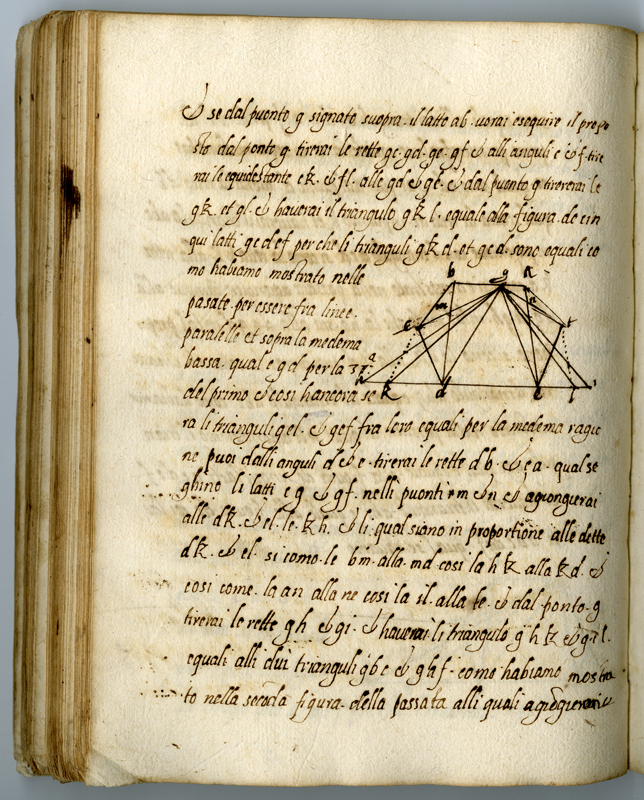 & se dal puonto g signato suopra il latte ab. vorai esequire il propo
sto dal ponto g. tirerai le rette gc. gd. ge. gf & alli anguli c & f. tire
rai le equidestante ck. & fl. alle gd & ge. & dal puonto g. tirerai le
gk. et gl. & haverai il triangulo gkl. equale alla figura. de cin
qui latti gcdef per che li trianguli gkd. et gcd. sono equali co
mo habiamo mostrato nelle
b g a
pasate. per essere fra linee.
paralelle et sopra la medema
c m n f
bassa. qual e gd per la 37ª
h k d e l i
del primo & cosi hancora se
ra li trianguli gel. & gef fra loro equali per la medema ragio
ne puoi dalli anguli d & e. tirerai le rette db. & ea. qual se
ghino li latti cg & gf. nelli puonti m & n & agiongierai
alle dk. & el. le. kh. & li. qual siano in proportione alle dette
dk. & el. si como. le bm. alla md. cosi la hk alla kd. &
cosi come. la an alla ne cosi la il. alla le. & dal ponto. g
tirerai le rette gh & gi. & haverai li triangulo ghk & gil.
equali alli dui trianguli gbc & gaf. como habiamo mostra
to nella seconda figura. della passata alli quali agiogierai